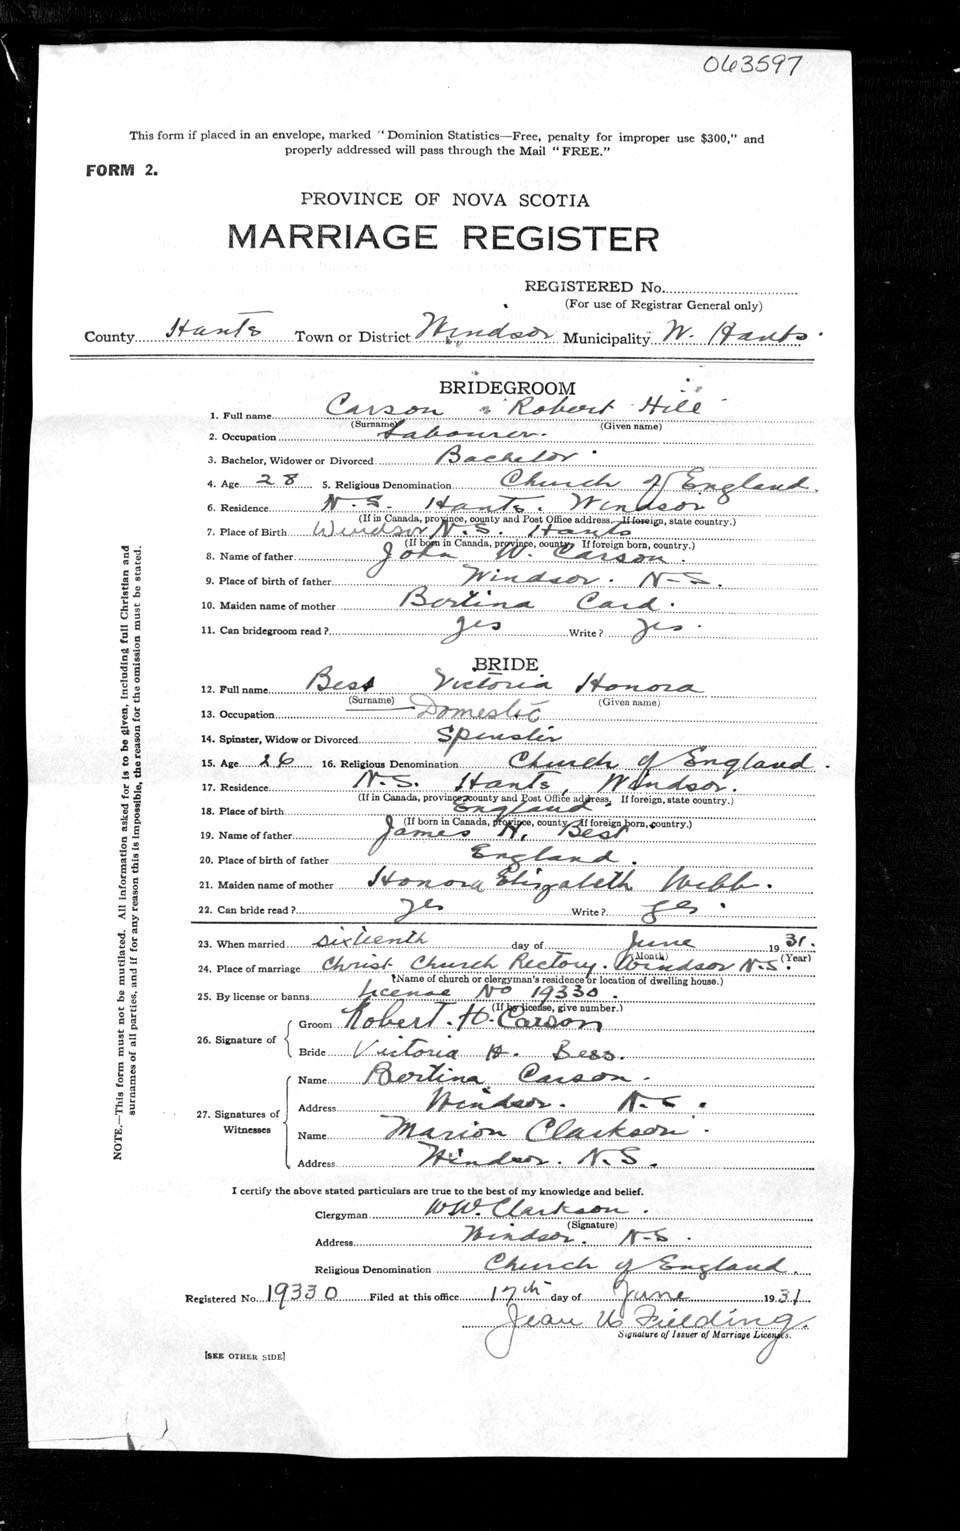 063597
This form if placed in an envelope, marked "Dominion Statistics—Free, penalty for improper use $300," and
properly addressed will pass through the Mail "FREE."
FORM 2.
PROVINCE OF NOVA SCOTIA
MARRIAGE REGISTER
REGISTERED No.
(For use of Registrar General only)
County Hants Town or District Windsor Municipality W. Hants
BRIDEGROOM
1. Full name Carson Robert Hill
(Surname) (Given name)
2. Occupation Labourer.
3. Bachelor, Widower or Divorced Bachelor
4. Age 28 5. Religious Denomination Church of England.
6. Residence N.S. Hants. Windsor
(If in Canada, province, county and Post Office address. If foreign, state country.)
7. Place of Birth Windsor N.S. Hants
(If born in Canada, province, county. If foreign born, country.)
8. Name of father John W. Carson.
9. Place of birth of father Windsor. N-S.
10. Maiden name of mother Bertina Card.
11. Can bridegroom read? yes Write? yes.
BRIDE
12. Full name Best Victoria Honora
(Surname) (Given name)
13. Occupation Domestic
14. Spinster, Widow or Divorced Spinster
15. Age 26 16. Religious Denomination Church of England.
17. Residence N.S. Hants, Windsor.
(If in Canada, province, county and Post Office address. If foreign, state country.)
18. Place of birth England.
(If born in Canada, province, county. If foreign born, country.)
19. Name of father James H. Best
20. Place of birth of father England.
21. Maiden name of mother Honora Elizabeth Webb.
22. Can bride read? yes Write? yes
23. When married sixteenth day of June 1931.
(Month) (Year)
24. Place of marriage Christ Church Rectory. Windsor N.S.
(Name of church or clergyman's residence or location of dwelling house.)
25. By license or banns License No 19330.
(If by license, give number.)
26. Signature of
Groom Robert. H. Carson
Bride Victoria H. Bess.
27. Signatures of Witnesses
Name Bertina Carson.
Address Windsor. N.S.
Name Marion Clarkson.
Address Windsor. N.S.
I certify the above stated particulars are true to the best of my knowledge and belief.
Clergyman W.W. Clarkson.
(Signature)
Address Windsor. N-S.
Religious Denomination Church of England.
Registered No. 19330 Filed at this office 17th day of June 1931
Jean Fielding.
Signature of Issuer of Marriage Licenses.
[SEE OTHER SIDE]
NOTE.—This form must not be mutilated. All information asked for is to be given, including full Christian and
surnames of all parties, and if for any reason this is impossible, the reason for the omission must be stated.